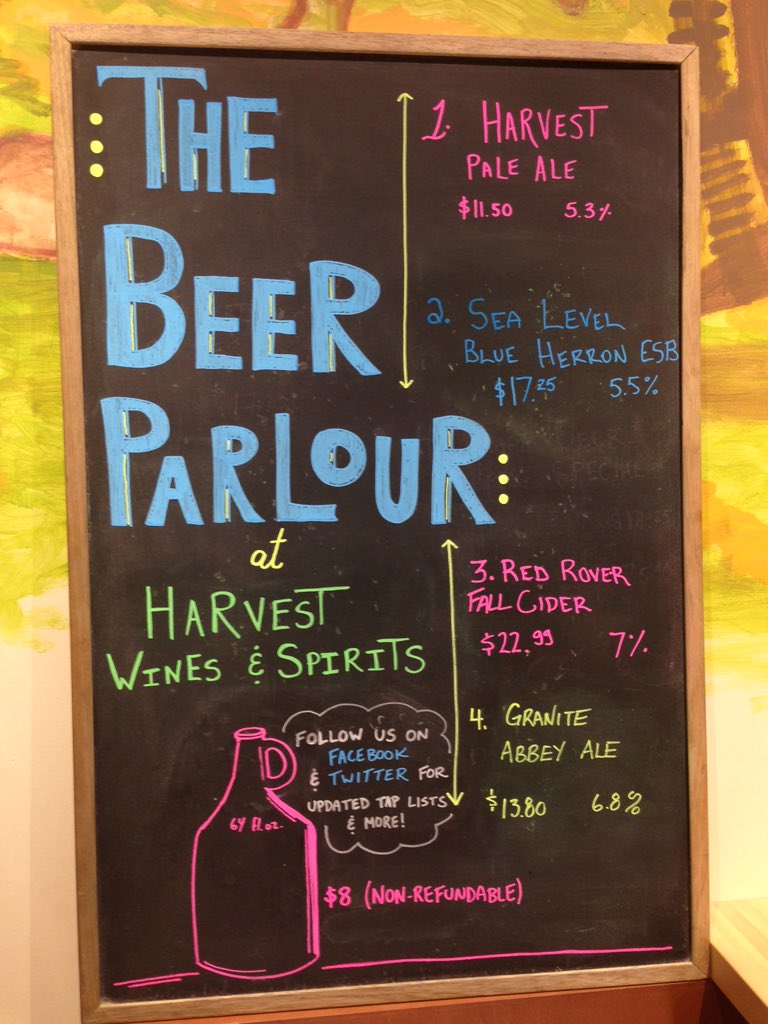 THE
BEER
PARLOUR
at
HARVEST
WINES & SPIRITS
1. HARVEST
PALE ALE
$11.50 5.3%
2. SEA LEVEL
BLUE HERRON ESB
$17.25 5.5%
3. RED ROVER
FALL CIDER
$22.99 7%
4. GRANITE
ABBEY ALE
$13.80 6.8%
FOLLOW US ON
FACEBOOK
& TWITTER FOR
UPDATED TAP LISTS
& MORE!
64 fl.oz.
$8 (NON-REFUNDABLE)